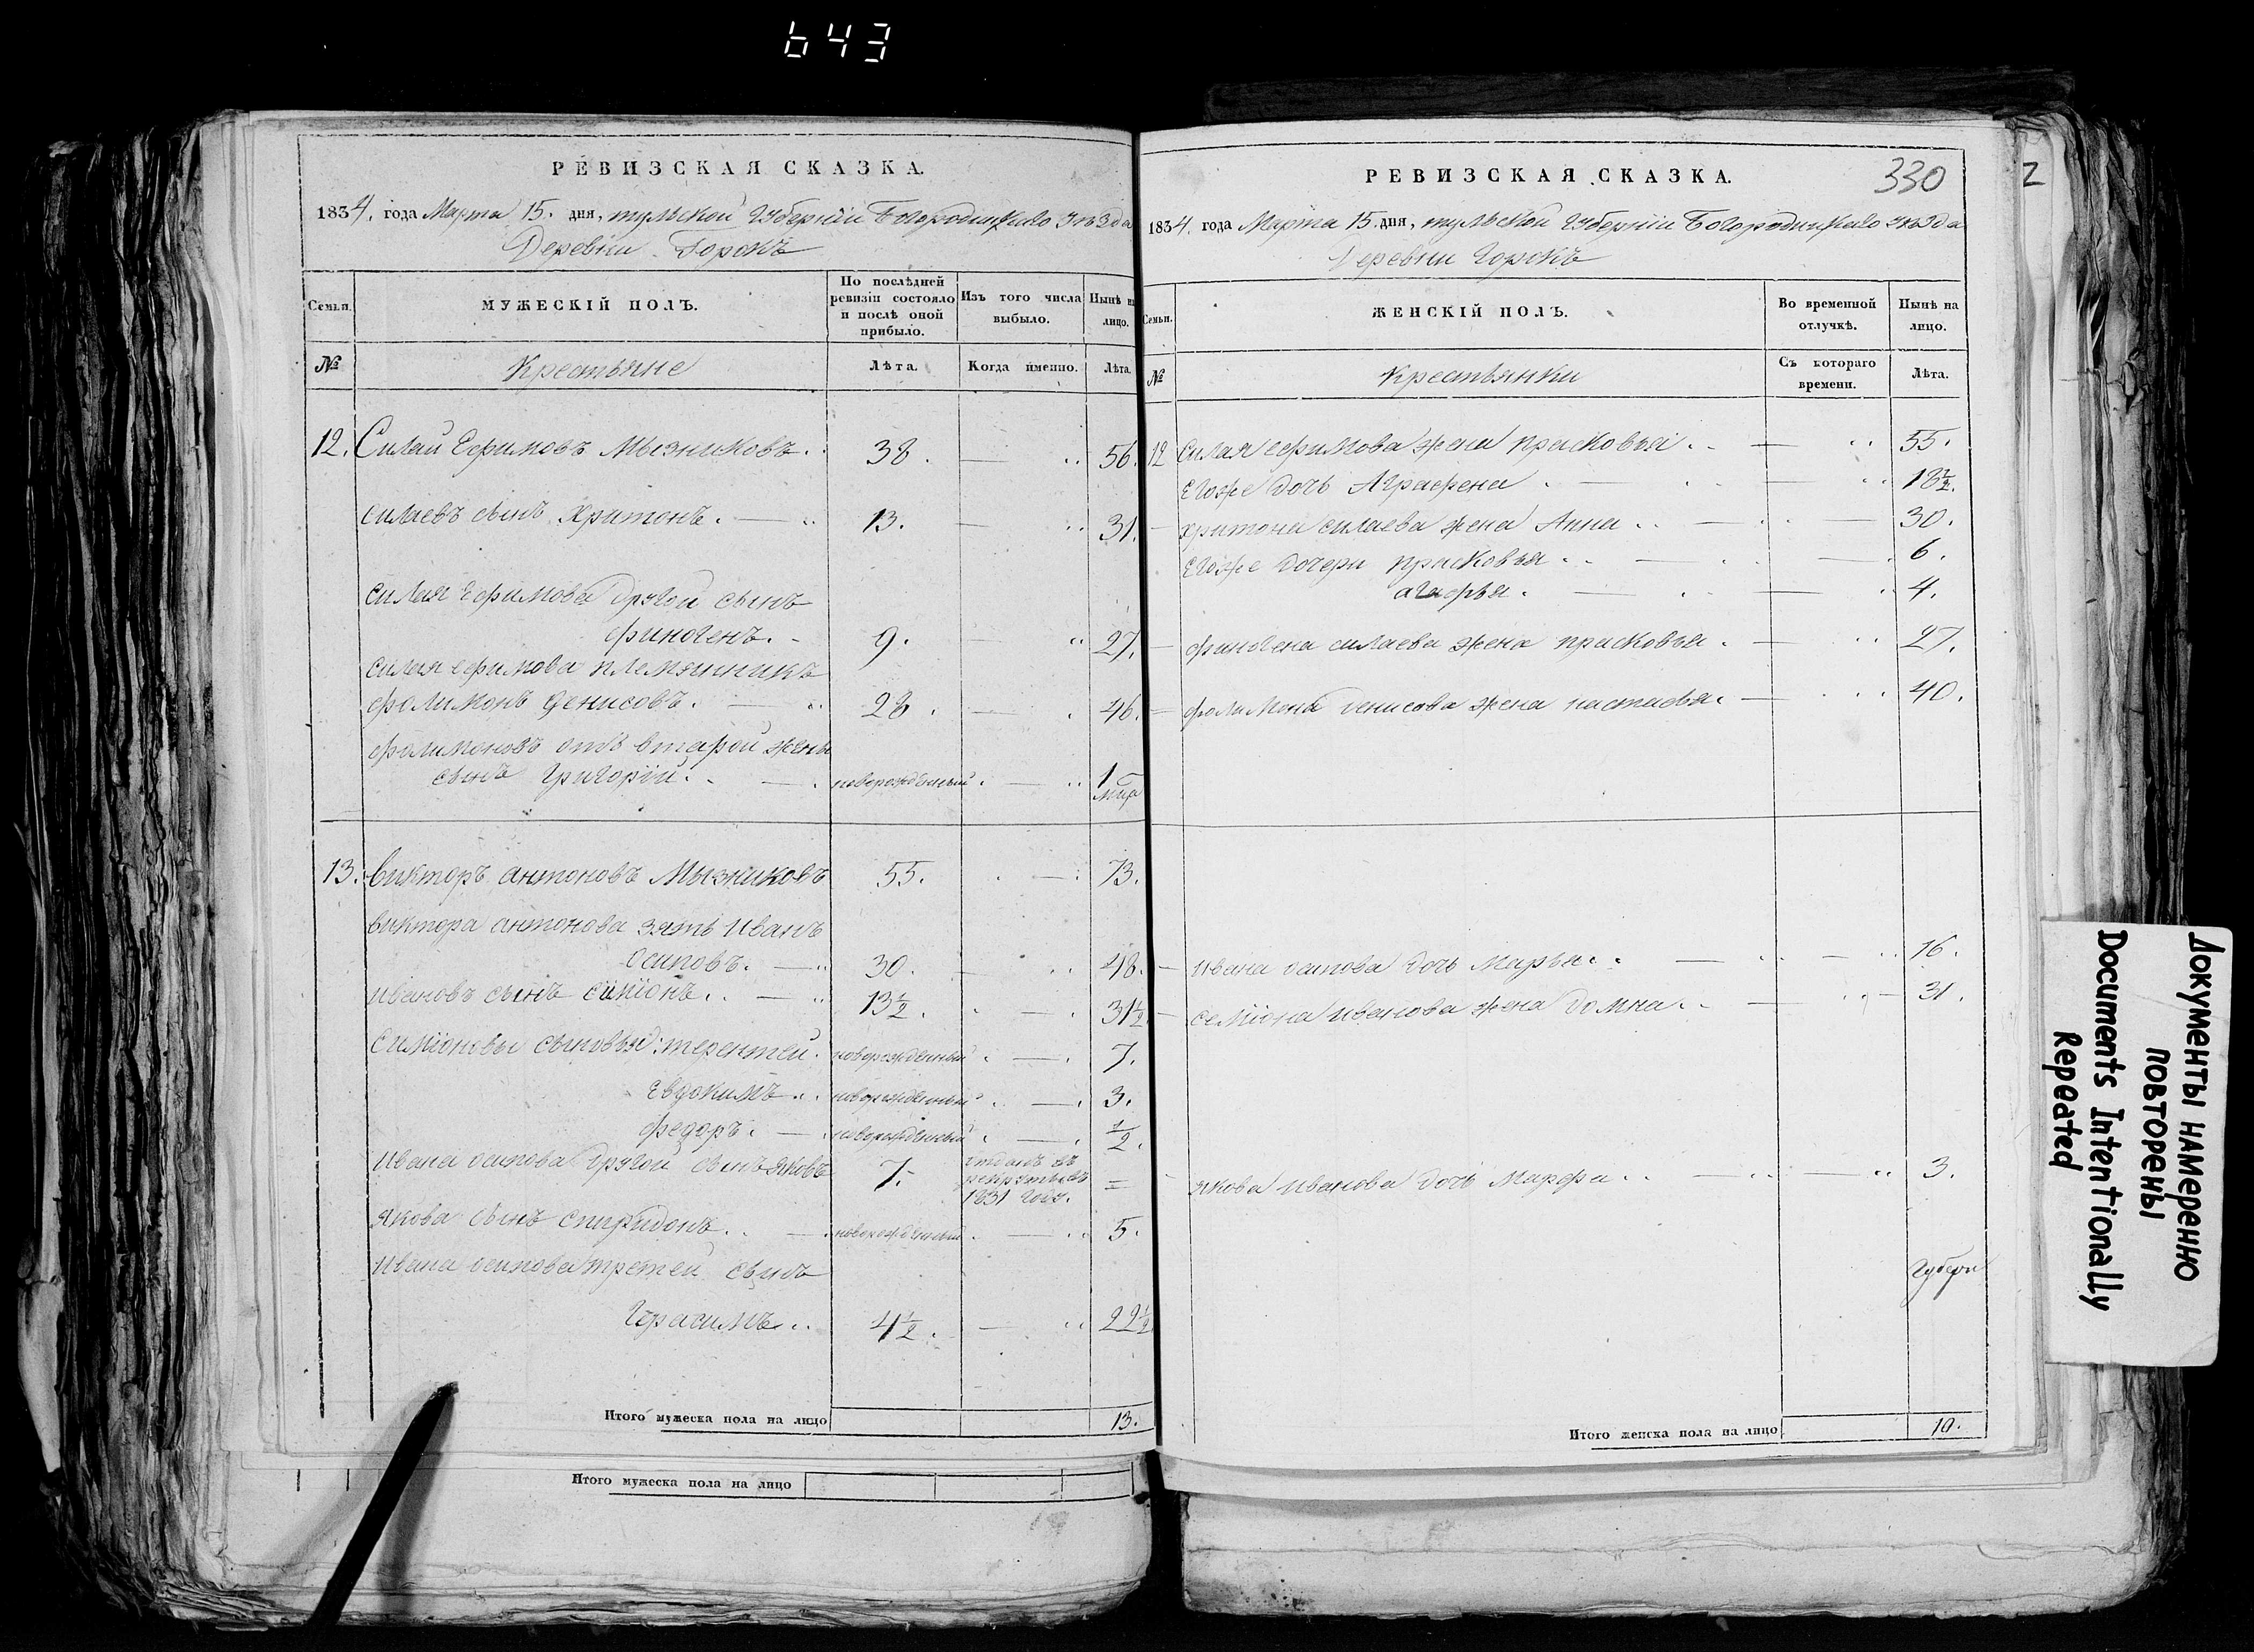 643
РЕВИЗСКАЯ СКАЗКА.
1834. года Марта 15. дня, тульской Губерніи Богородицкаго Уѣзда
Деревни Горокъ
Семьи.
МУЖЕСКІЙ ПОЛЪ.
По послѣдней ревизіи состояло и послѣ оной прибыло.
Изъ того числа выбыло.
Нынѣ на лицо.
№
Крестьяне
Лѣта.
Когда именно.
Лѣта.
12. Силай Ефимовъ Мызниковъ. 38. 56.
силаевъ сынъ Хритонъ. 13. 31.
силая Ефимова другой сынъ
финогенъ. 9. 27.
силая ефимова племянникъ
фолимонъ денисовъ. 28. 46.
фолимоновъ отъ второй жены
сынъ григорій. новорожденный. 1
13. Викторъ антоновъ Мызниковъ 55. 73.
виктора антонова зять иванъ
осиповъ. 30. 48.
ивановъ сынъ симіонъ. 13½. 31½
Симіоновы сыновья: терентей. новорожденный. 7.
Евдокимъ. новорожденный. 3.
федоръ. новорожденный. ½.
ивана осипова другой сынъ яковъ 7. отданъ въ рекруты въ 1831 году. =
якова сынъ спиридонъ. новорожденный. 5.
ивана осипова третей сынъ
Герасимъ. 4½. 22½
Итого мужеска пола на лицо 13.
Итого мужеска пола на лицо
РЕВИЗСКАЯ СКАЗКА.
330
1834. года Марта 15. дня, тульской Губерніи Богородицкаго Уѣзда
Деревни Горокъ
Семьи.
ЖЕНСКІЙ ПОЛЪ.
Во временной отлучкѣ.
Нынѣ на лицо.
№
Крестьянки
Съ котораго времени.
Лѣта.
12 Силая ефимова жена прасковья. 55.
Егоже дочь Аграфена. 18½.
хритона силаева жена Анна. 30.
Егоже дочери прасковья. 6.
агафья. 4.
финогена силаева жена прасковья. 27.
фолимона денисова жена настасья. 40.
ивана осипова дочь марья. 16.
семіона иванова жена домна. 31.
якова иванова дочь марфа. 3.
Губерн
Итого женска пола на лицо 10.
2
Документы намеренно
повторены
Documents Intentionally
Repeated